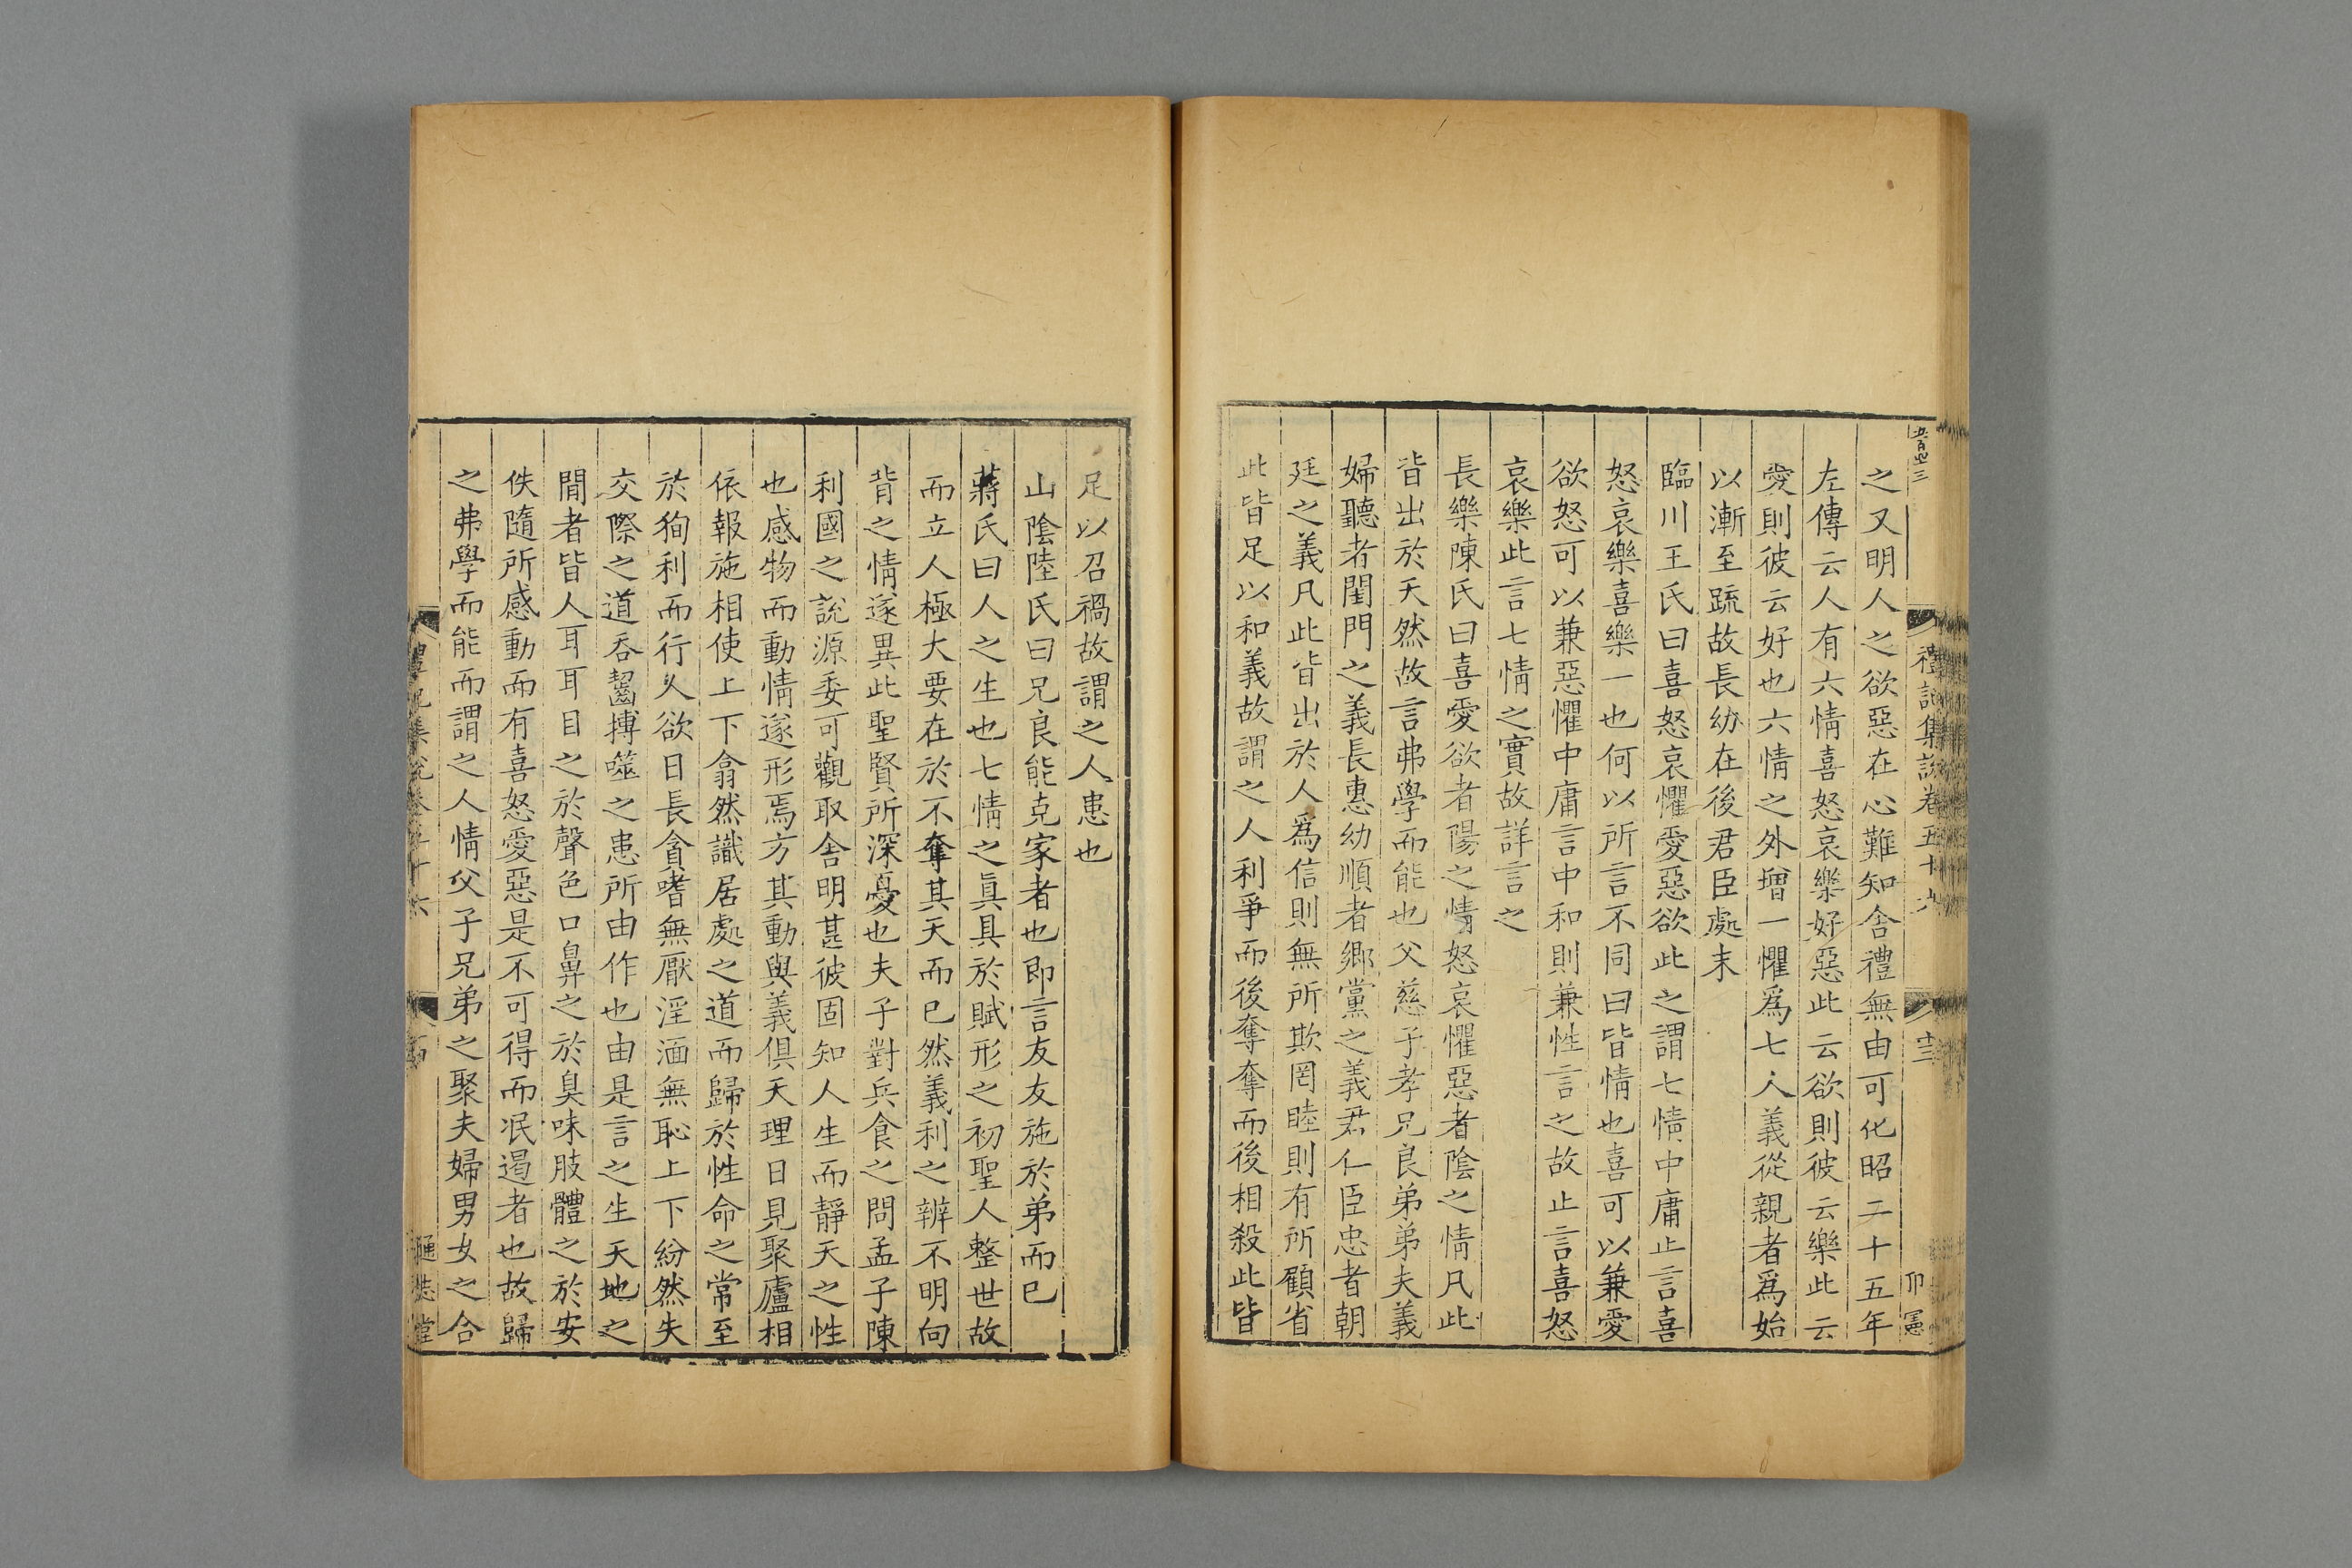 之又明人之欲惡在心難知舍禮無由可化昭二十五年
左傳云人有六情喜怒哀樂好惡此云欲則彼云樂此云
愛則彼云好也六情之外增一懼爲七人義從親者爲始
以漸至疏故長幼在後君臣處末
臨川王氏曰喜怒哀懼愛惡欲此之謂七情中庸止言喜
怒哀樂喜樂一也何以所言不同曰皆情也喜可以兼愛
欲怒可以兼惡懼中庸言中和則兼性言之故止言喜怒
哀樂此言七情之實故詳言之
長樂陳氏曰喜愛欲者陽之情怒哀懼惡者陰之情凡此
皆出於天然故言弗學而能也父慈子孝兄良弟弟夫義
婦聽者閨門之義長惠幼順者鄉黨之義君仁臣忠者朝
廷之義凡此皆出於人爲信則無所欺罔睦則有所顧省
此皆足以和義故謂之人利爭而後奪奪而後相殺此皆
禮記集說卷五十六
十三
足以召禍故謂之人患也
山陰陸氏曰兄良能克家者也即言友友施於弟而已
蔣氏曰人之生也七情之眞具於賦形之初聖人整世故
而立人極大要在於不奪其天而已然義利之辨不明向
背之情遂異此聖賢所深憂也夫子對兵食之問孟子陳
利國之說源委可觀取舍明甚彼固知人生而靜天之性
也感物而動情遂形焉方其動與義俱天理日見聚廬相
依報施相使上下翕然識居處之道而歸於性命之常至
於狥利而行人欲日長貪嗜無厭淫湎無恥上下紛然失
交際之道吞齧搏噬之患所由作也由是言之生天地之
間者皆人耳耳目之於聲色口鼻之於臭味肢體之於安
佚隨所感動而有喜怒愛惡是不可得而泯遏者也故歸
之弗學而能而謂之人情父子兄弟之聚夫婦男女之合
禮記集說卷五十六
通志堂